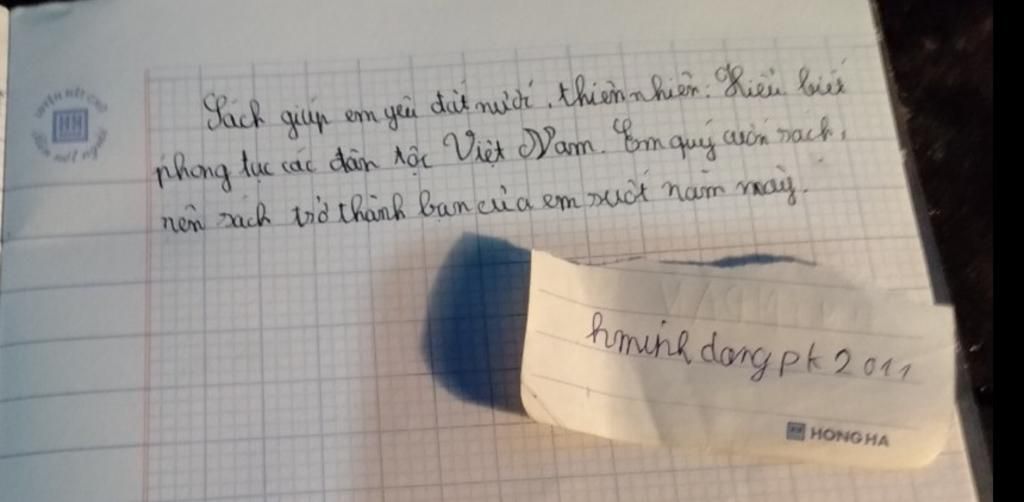 Sách giúp em yêu đất nước, thiên nhiên. Hiểu biết
phong tục các dân tộc Việt Nam. Em quý cuốn sách,
nên sách trở thành bạn của em suốt năm nay.
hminh dang pk 2011
HH
HONG HA